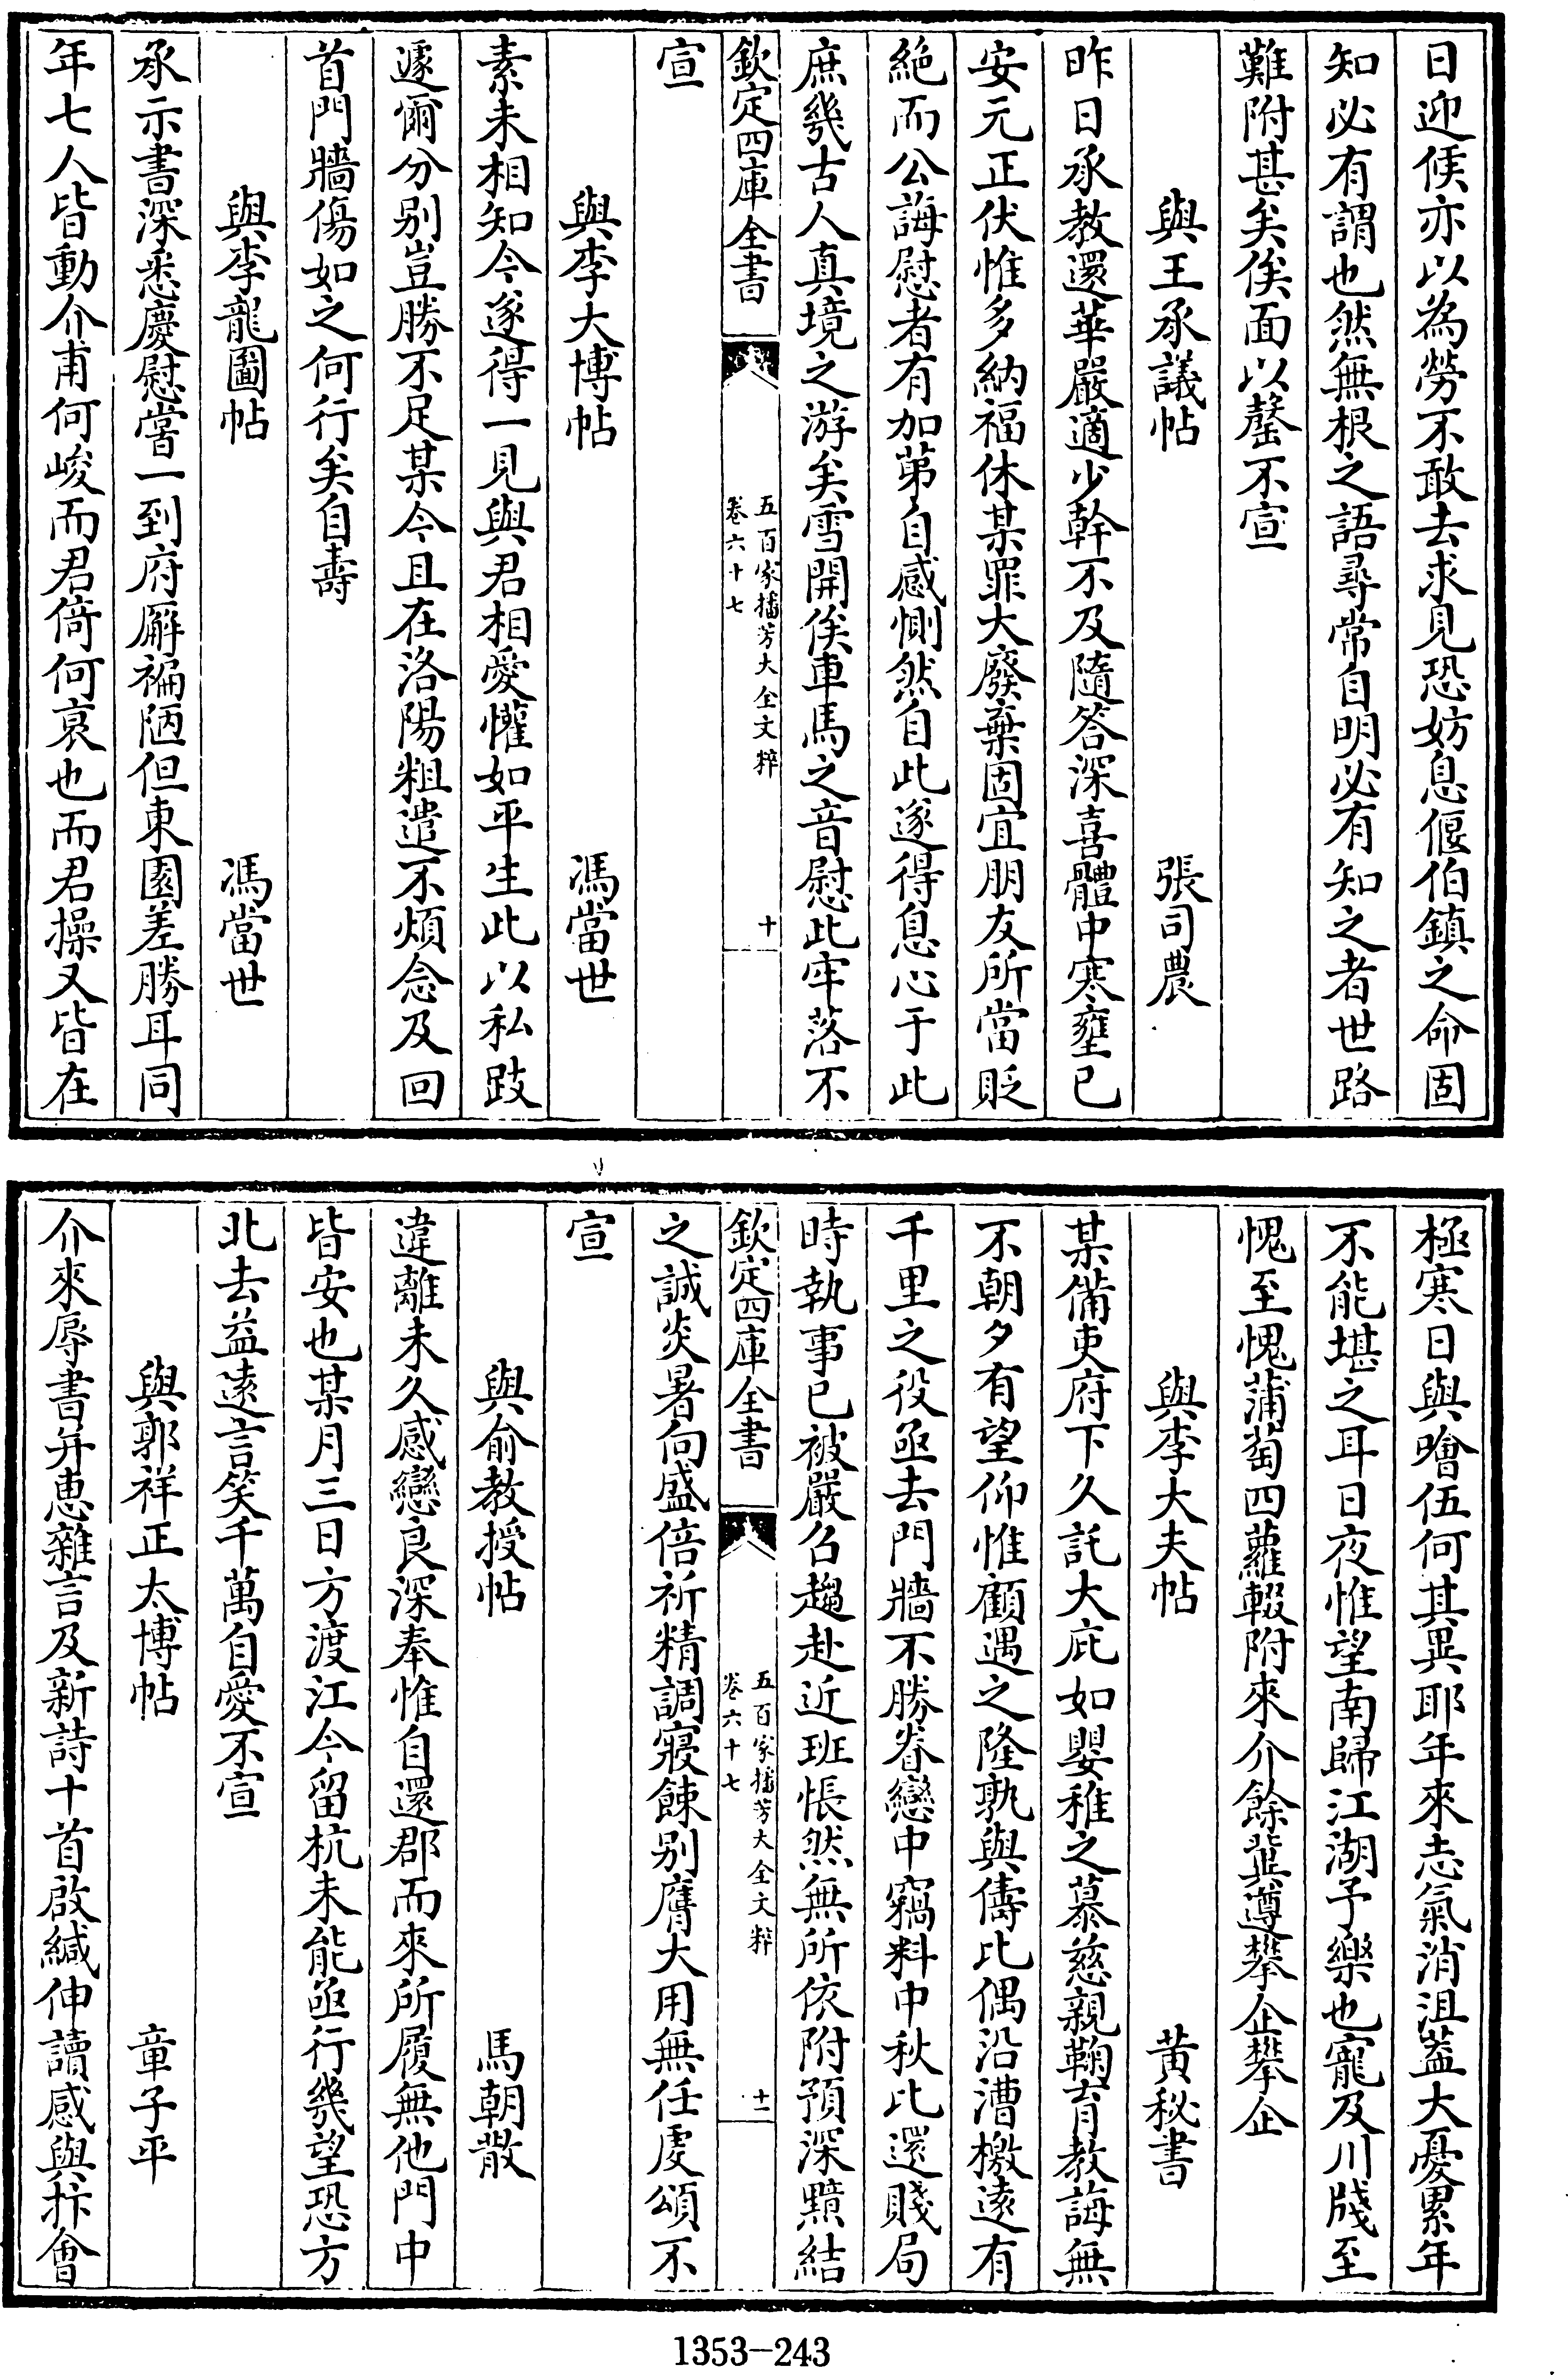 日迎候亦以為勞不敢去求見恐妨息偃伯鎮之命固
知必有謂也然無根之語尋常自明必有知之者世路
難附甚矣俟面以罄不宣
與王承議帖 張司農
昨日承教還華嚴適少幹不及隨答深喜體中寒壅已
安元正伏惟多納福休某罪大廢棄固宜朋友所當貶
絶而公誨慰者有加第自感惻然自此遂得息心于此
庶幾古人真境之游矣雪開俟車馬之音慰此牢落不
欽定四庫全書 五百家播芳大全文粹 卷六十七 十
宣
與李大博帖 馮當世
素未相知今遂得一見與君相愛懽如平生此以私跂
遽爾分别豈勝不足某今且在洛陽粗遣不煩念及回
首門牆傷如之何行矣自壽
與李龍圖帖 馮當世
承示書深悉慶慰嘗一到府廨褊陋但東園差勝耳同
年七人皆動介甫何峻而君倚何哀也而君操又皆在
極寒日與噲伍何其異耶年來志氣消沮葢大憂累年
不能堪之耳日夜惟望南歸江湖予樂也寵及川牋至
愧至愧蒲萄四蘿輟附來介餘兾遵攀企攀企
與李大夫帖 黄秘書
某備吏府下久託大庇如嬰稚之慕慈親鞠育教誨無
不朝夕有望仰惟顧遇之隆孰與儔比偶沿漕檄遠有
千里之役亟去門牆不勝眷戀中竊料中秋比還賤局
時執事已被嚴召趨赴近班悵然無所依附預深黯結
欽定四庫全書 五百家播芳大全文粹 卷六十七 十一
之誠炎暑向盛倍祈精調寢餗别膺大用無任虔頌不
宣
與俞教授帖 馬朝散
違離未久感戀良深奉惟自還郡而來所履無他門中
皆安也某月三日方渡江今留杭未能亟行幾望恐方
北去益遠言笑千萬自愛不宣
與郭祥正太博帖 章子平
介來辱書并惠雜言及新詩十首啟緘伸讀感與抃會
1353-243